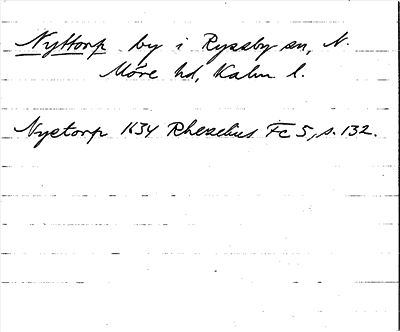 Nyttorp by i Ryssby sn, N.
Möre hd, Kalm l.
Nyetorp 1634 Rhezelius Fc 5, s. 132.